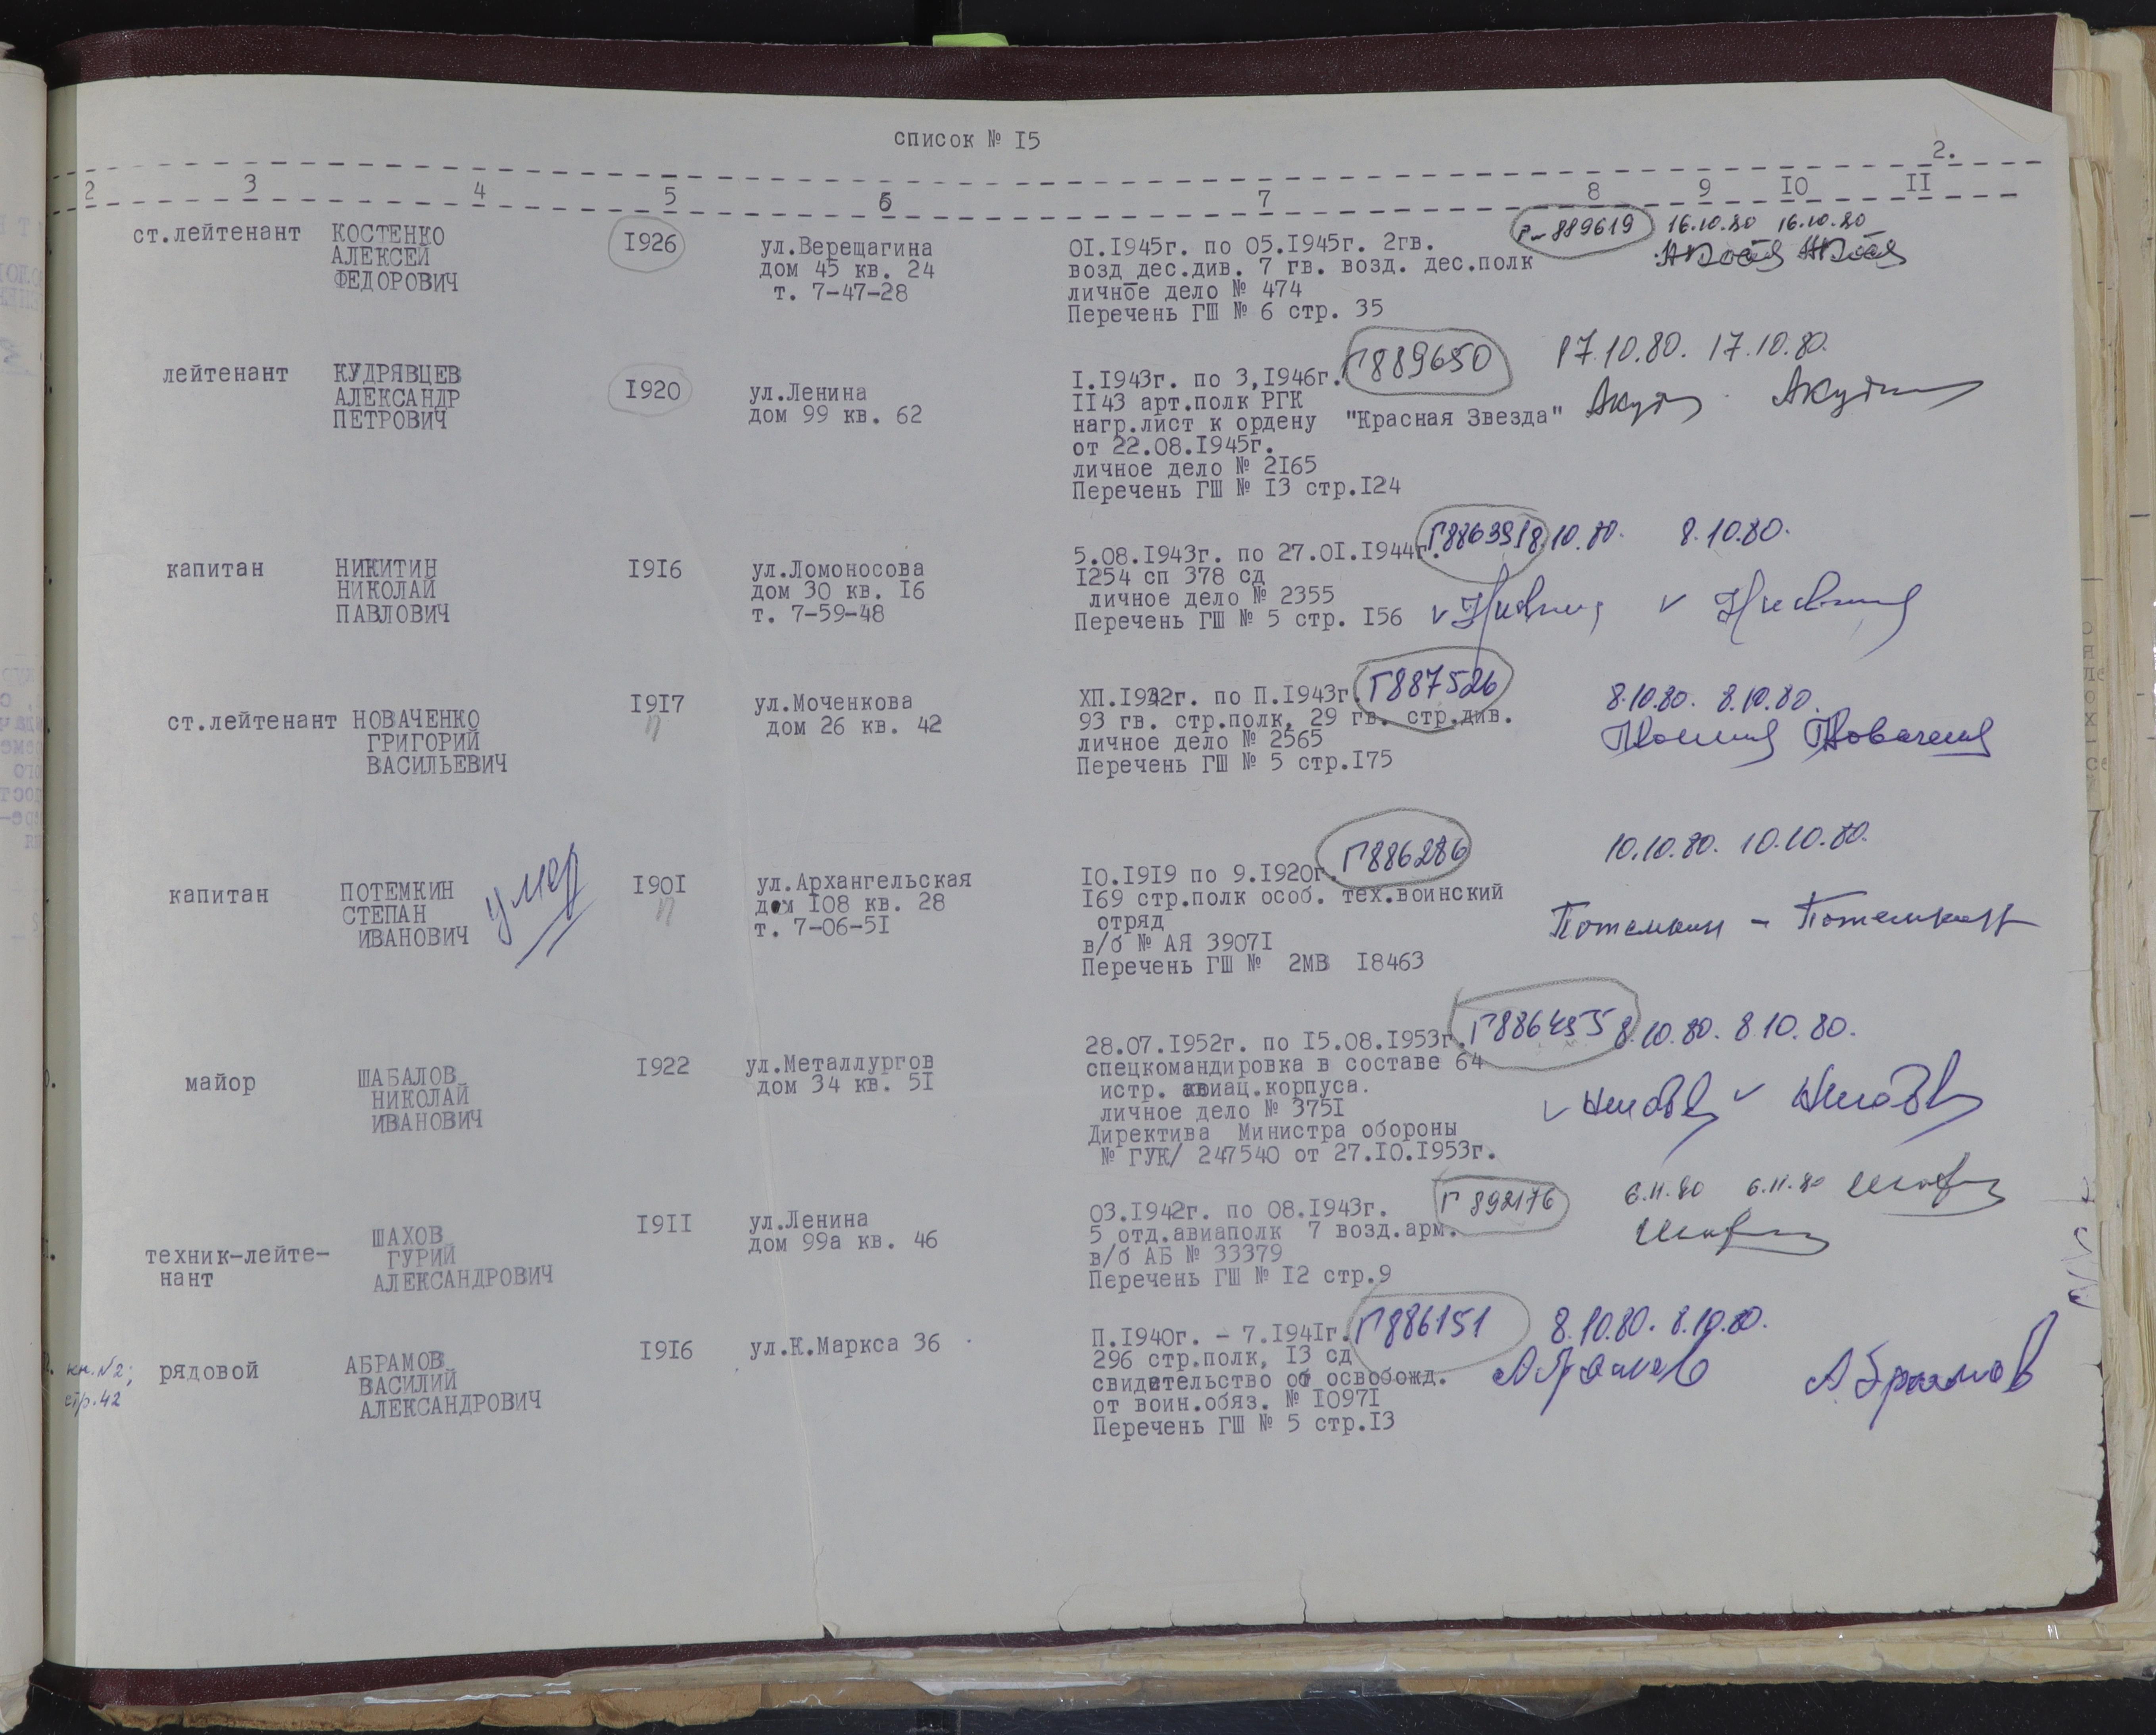 список № I5
2.
2 3 4 5 6 7 8 9 IO II
ст.лейтенант КОСТЕНКО I926 ул.Верещагина OI.I945г. по 05.I945г. 2гв. Р-889619 16.10.80 16.10.80
АЛЕКСЕЙ дом 45 кв. 24 возд дес.див. 7 гв. возд. дес.полк
ФЕДОРОВИЧ т. 7-47-28 личное дело № 474
Перечень ГШ № 6 стр. 35
лейтенант КУДРЯВЦЕВ I920 ул.Ленина I.I943г. по 3,I946г. Г889650 17.10.80. 17.10.80.
АЛЕКСАНДР дом 99 кв. 62 II43 арт.полк РГК
ПЕТРОВИЧ нагр.лист к ордену "Красная Звезда"
от 22.08.I945г.
личное дело № 2I65
Перечень ГШ № I3 стр.I24
капитан НИКИТИН I9I6 ул.Ломоносова 5.08.I943г. по 27.OI.I944г. 8.10.80. 8.10.80.
НИКОЛАЙ дом 30 кв. I6 I254 сп 378 сд
ПАВЛОВИЧ т. 7-59-48 личное дело № 2355
Перечень ГШ № 5 стр. I56
ст.лейтенант НОВАЧЕНКО I9I7 ул.Моченкова ХП.I942г. по П.I943г. Г887526 8.10.80. 8.10.80.
ГРИГОРИЙ п дом 26 кв. 42 93 гв. стр.полк, 29 гв. стр.див.
ВАСИЛЬЕВИЧ личное дело № 2565
Перечень ГШ № 5 стр.I75
капитан ПОТЕМКИН умер I90I ул.Архангельская IO.I9I9 по 9.I920г. Г886286 10.10.80. 10.10.80.
СТЕПАН п дом I08 кв. 28 I69 стр.полк особ. тех.воинский
ИВАНОВИЧ т. 7-06-5I отряд Потемкин - Потемкин
в/б № АЯ 3907I
Перечень ГШ № 2МВ I8463
майор ШАБАЛОВ I922 ул.Металлургов 28.07.I952г. по I5.08.I953г. Г886455 8.10.80. 8.10.80.
НИКОЛАЙ дом 34 кв. 5I спецкомандировка в составе 64
ИВАНОВИЧ истр. авиац.корпуса.
личное дело № 375I
Директива Министра обороны
№ ГУК/ 247540 от 27.IO.I953г.
техник-лейте- ШАХОВ I9II ул.Ленина 03.I942г. по 08.I943г. Г 892176 6.11.80 6.11.80
нант ГУРИЙ дом 99а кв. 46 5 отд.авиаполк 7 возд.арм.
АЛЕКСАНДРОВИЧ в/б АБ № 33379
Перечень ГШ № I2 стр.9
кн.№2; рядовой АБРАМОВ I9I6 ул.К.Маркса 36 П.I940г. - 7.I94Iг. Г886151 8.10.80. 8.10.80.
стр.42 ВАСИЛИЙ 296 стр.полк, I3 сд
АЛЕКСАНДРОВИЧ свидетельство об освобожд. Абрамов
от воин.обяз. № I097I
Перечень ГШ № 5 стр.I3